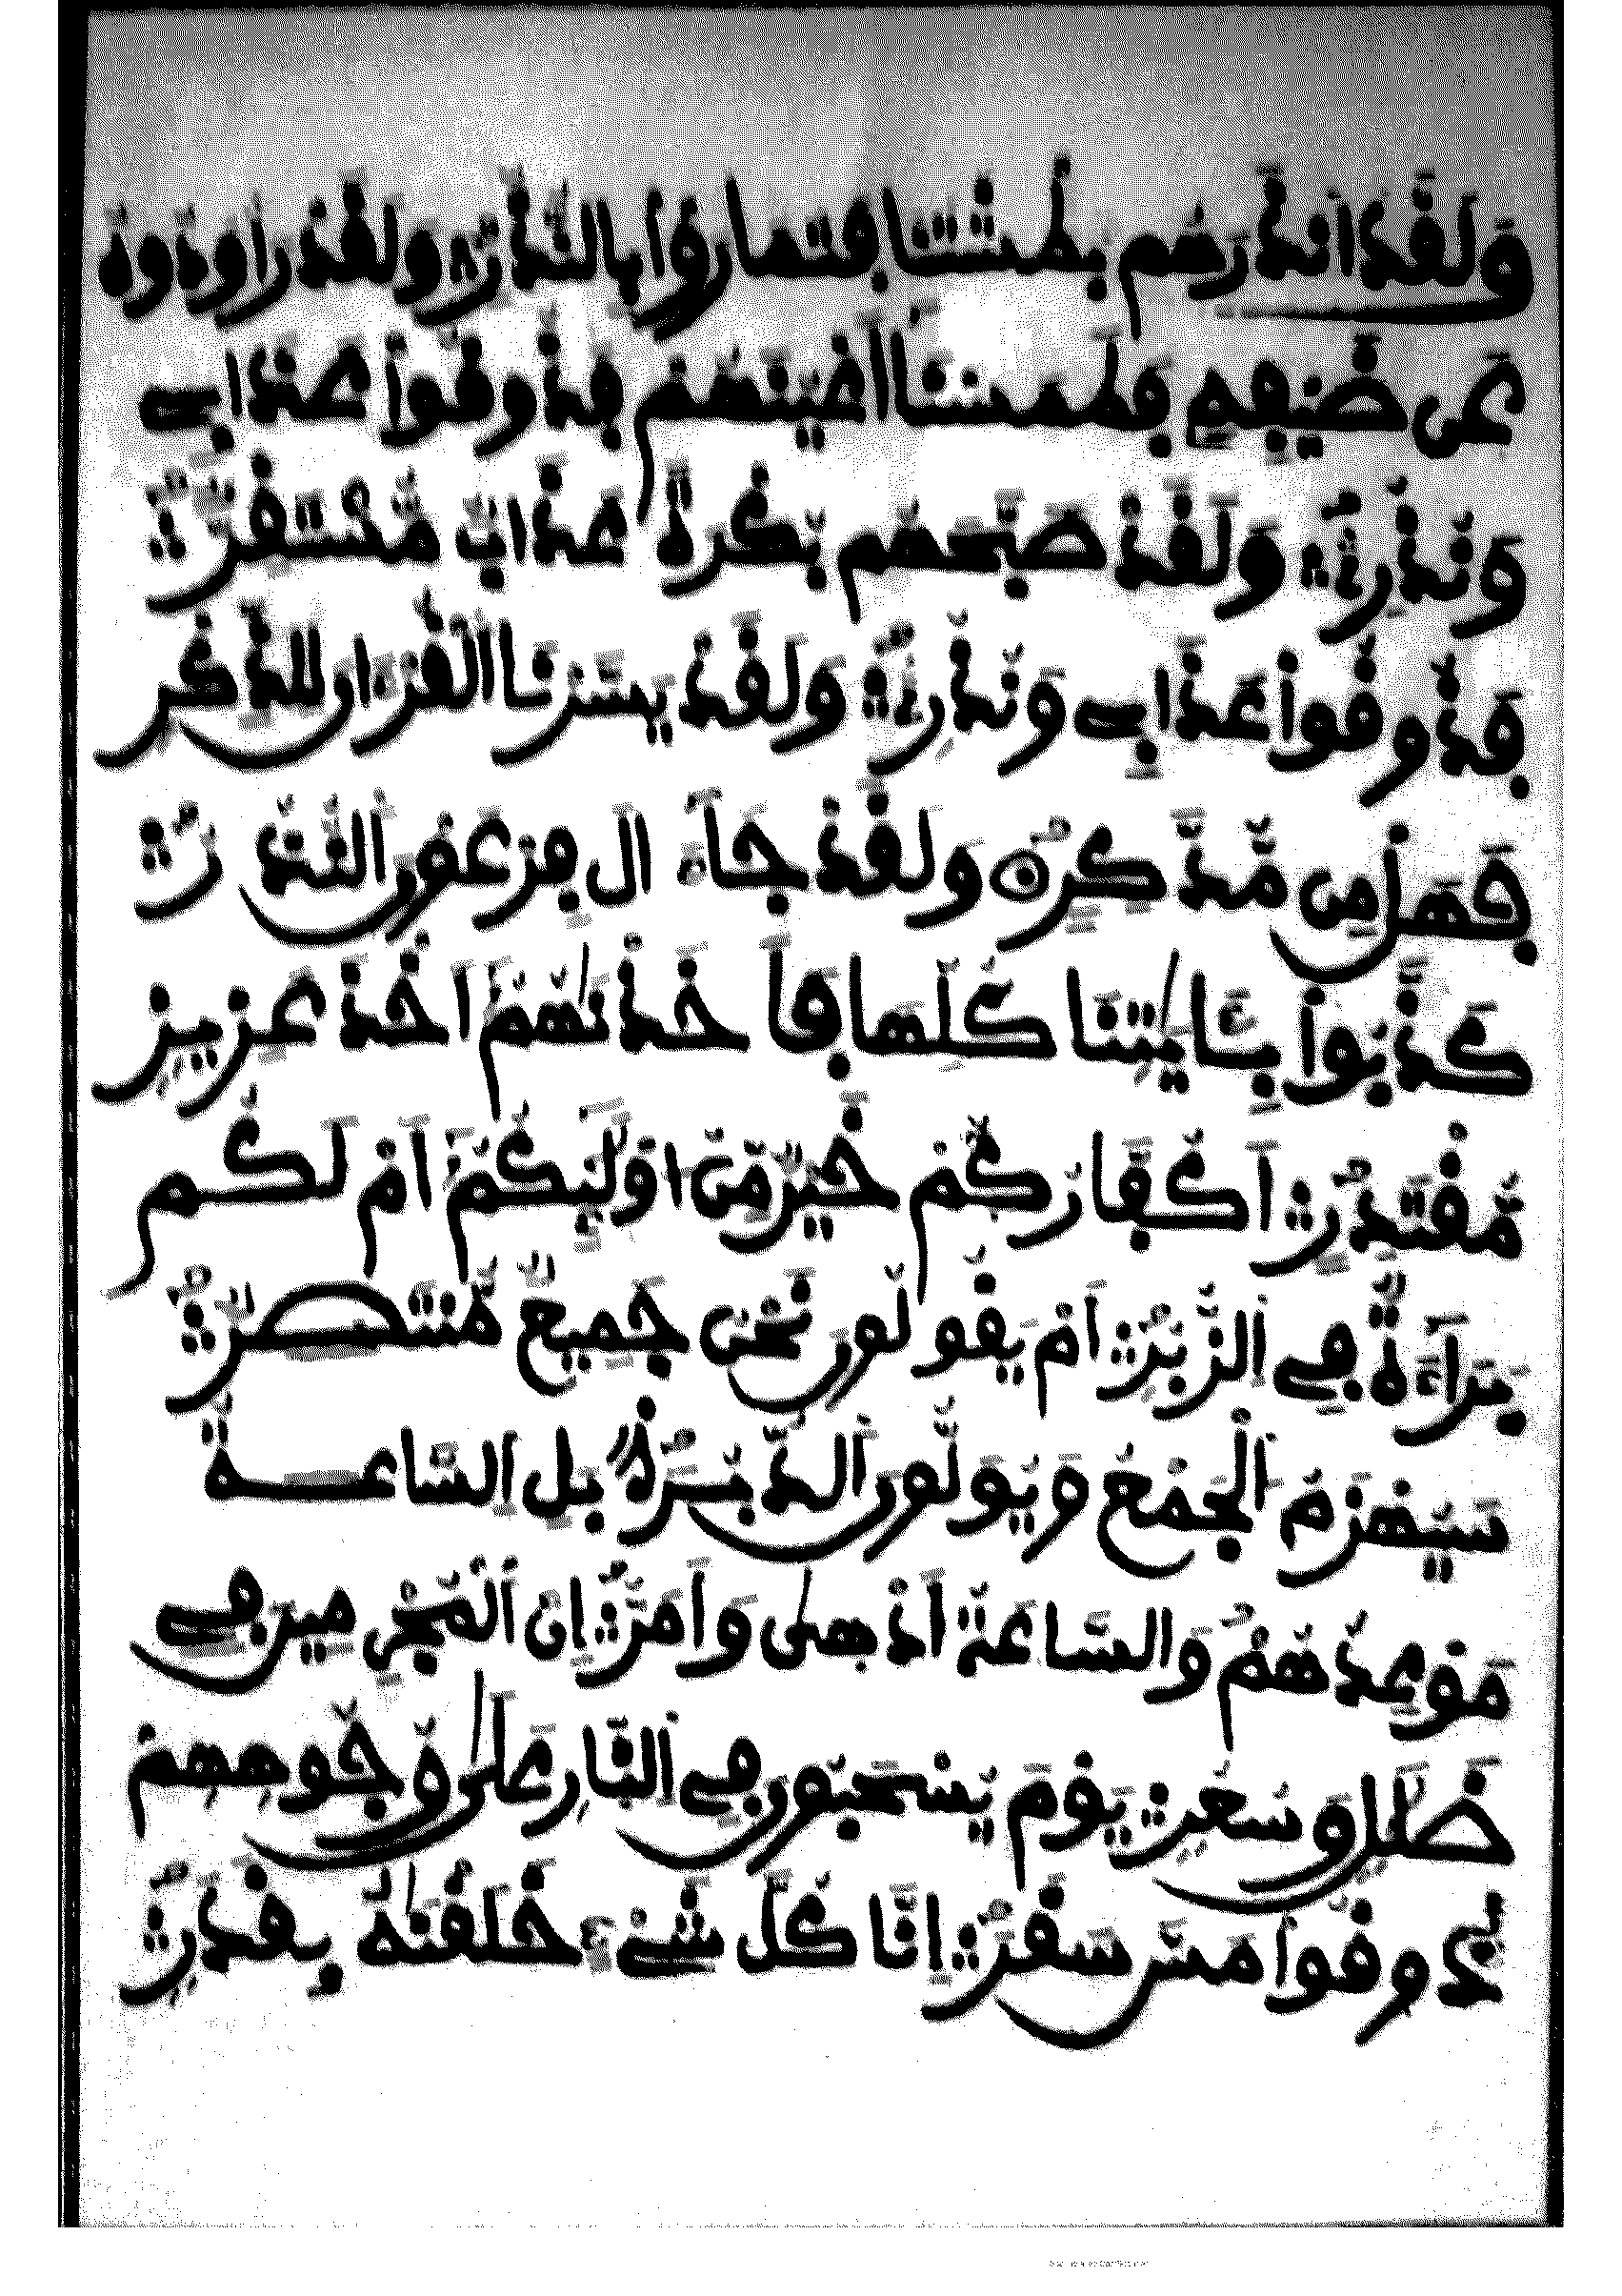 وَلَقَدَ اَنذَرَهُم بَطْشَتَنَا فَتَمَارَوْا بِالنُّذُرِ وَلَقَدْ رَاوَدُوهُ
عَن ضَيْفِهِ فَطَمَسْنَا أَعْيُنَهُمْ فَذُوقُوا عَذَابِے
وَنُذُرِ وَلَقَدْ صَبَّحَهُم بُكْرَةً عَذَابٌ مُّسْتَقِرٌّ
فَذُوقُوا عَذَابِے وَنُذُرِ وَلَقَدْ يَسَّرْنَا اَلْقُرْءَانَ لِلذِّكْرِ
فَهَلْ مِن مُّدَّكِرٍ وَلَقَدْ جَآءَ الَ فِرْعَوْنَ اَلنُّذُرُ
كَذَّبُوا بِـَٔايَٰتِنَا كُلِّهَا فَأَخَذْنَٰهُمُ أَخْذَ عَزِيزٍ
مُّقْتَدِرٍ اَكُفَّارُكُمْ خَيْرٌ مِّنُ اوْلَٰٓئِكُمُ أَمْ لَكُم
بَرَآءَةٌ فِے اِلزُّبُرِ أَمْ يَقُولُونَ نَحْنُ جَمِيعٌ مُّنتَصِرٌ
سَيُهْزَمُ اُلْجَمْعُ وَيُوَلُّونَ اَلدُّبُرَ بَلِ اِلسَّاعَةُ
مَوْعِدُهُمْ وَالسَّاعَةُ أَدْهَىٰ وَأَمَرُّ إِنَّ اَلْمُجْرِمِينَ فِے
ضَلَٰلٍ وَسُعُرٍ يَوْمَ يُسْحَبُونَ فِے اِلنَّارِ عَلَىٰ وُجُوهِهِمْ
ذُوقُوا مَسَّ سَقَرَ إِنَّا كُلَّ شَےْءٍ خَلَقْنَٰهُ بِقَدَرٍ